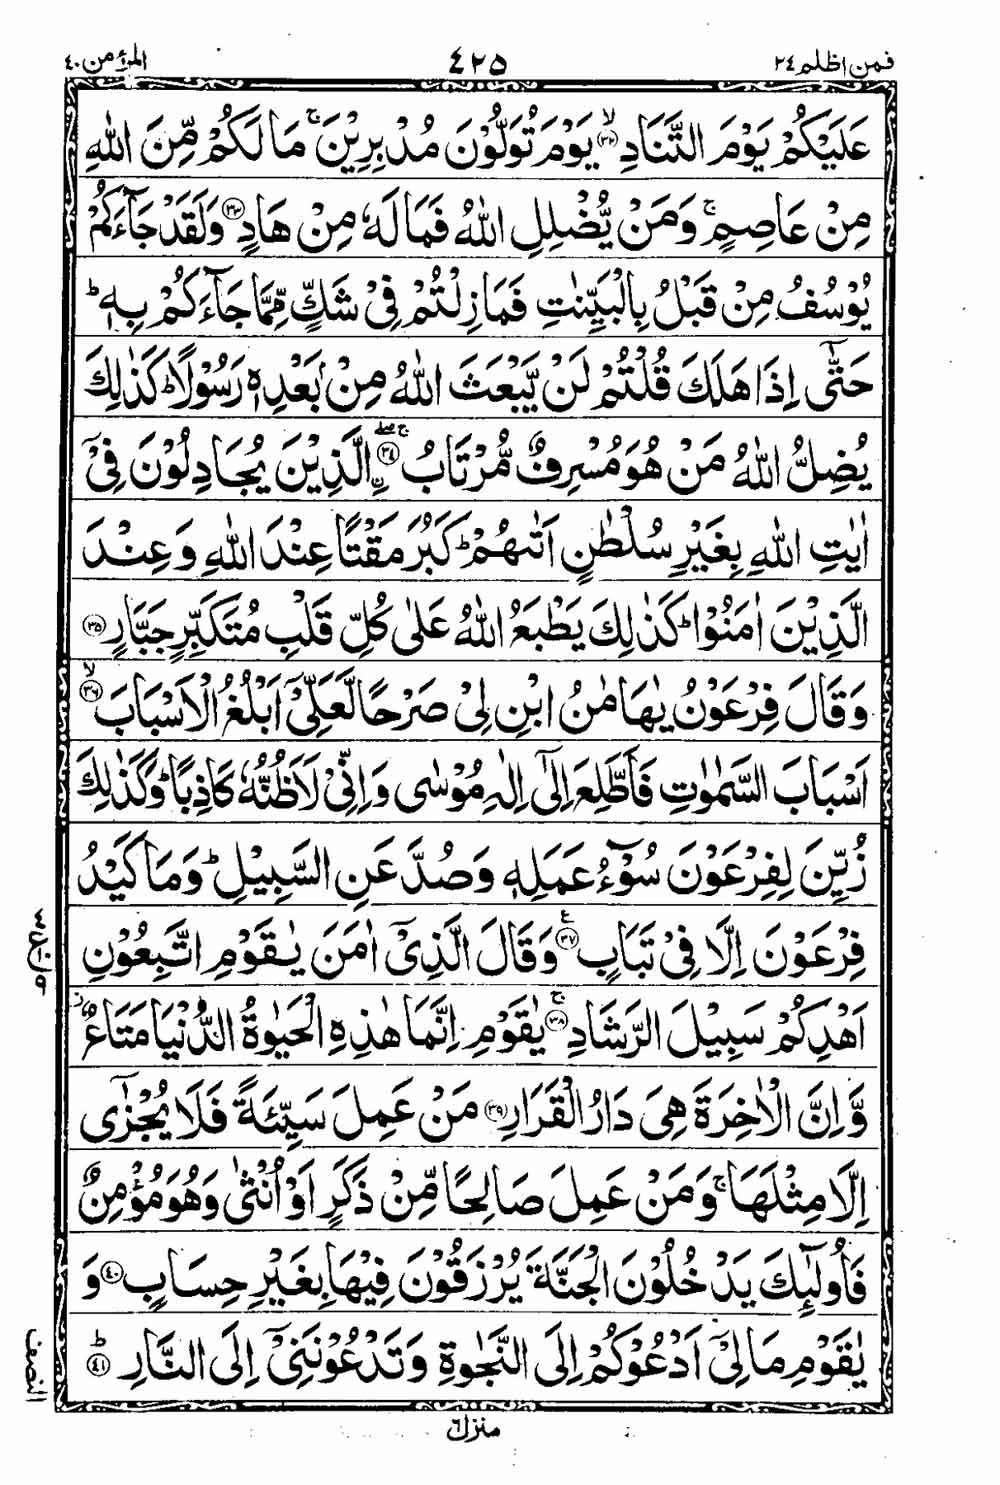 فمن اظلم ٢٤
٤٢٥
المؤمن ٤٠
عَلَيْكُمْ يَوْمَ التَّنَادِ ۙ﴿۳۲﴾ يَوْمَ تُوَلُّوْنَ مُدْبِرِيْنَ ۚ مَا لَكُمْ مِّنَ اللّٰهِ
مِنْ عَاصِمٍ ۚ وَمَنْ يُّضْلِلِ اللّٰهُ فَمَا لَهٗ مِنْ هَادٍ ﴿۳۳﴾ وَلَقَدْ جَآءَكُمْ
يُوْسُفُ مِنْ قَبْلُ بِالْبَيِّنٰتِ فَمَا زِلْتُمْ فِيْ شَكٍّ مِّمَّا جَآءَكُمْ بِهٖ ؕ
حَتّٰٓى اِذَا هَلَكَ قُلْتُمْ لَنْ يَّبْعَثَ اللّٰهُ مِنْ بَعْدِهٖ رَسُوْلًا ؕ كَذٰلِكَ
يُضِلُّ اللّٰهُ مَنْ هُوَ مُسْرِفٌ مُّرْتَابُ ۚۖ﴿۳۴﴾ ۨالَّذِيْنَ يُجَادِلُوْنَ فِيْٓ
اٰيٰتِ اللّٰهِ بِغَيْرِ سُلْطٰنٍ اَتٰىهُمْ ؕ كَبُرَ مَقْتًا عِنْدَ اللّٰهِ وَعِنْدَ
الَّذِيْنَ اٰمَنُوْا ؕ كَذٰلِكَ يَطْبَعُ اللّٰهُ عَلٰى كُلِّ قَلْبِ مُتَكَبِّرٍ جَبَّارٍ ﴿۳۵﴾
وَقَالَ فِرْعَوْنُ يٰهَامٰنُ ابْنِ لِيْ صَرْحًا لَّعَلِّيْٓ اَبْلُغُ الْاَسْبَابَ ۙ﴿۳۶﴾
اَسْبَابَ السَّمٰوٰتِ فَاَطَّلِعَ اِلٰٓى اِلٰهِ مُوْسٰى وَاِنِّيْ لَاَظُنُّهٗ كَاذِبًا ؕ وَكَذٰلِكَ
زُيِّنَ لِفِرْعَوْنَ سُوْٓءُ عَمَلِهٖ وَصُدَّ عَنِ السَّبِيْلِ ؕ وَمَا كَيْدُ
فِرْعَوْنَ اِلَّا فِيْ تَبَابٍ ﴿۳۷﴾ ع وَقَالَ الَّذِيْٓ اٰمَنَ يٰقَوْمِ اتَّبِعُوْنِ
اَهْدِكُمْ سَبِيْلَ الرَّشَادِ ۚ﴿۳۸﴾ يٰقَوْمِ اِنَّمَا هٰذِهِ الْحَيٰوةُ الدُّنْيَا مَتَاعٌ ز
وَّاِنَّ الْاٰخِرَةَ هِيَ دَارُ الْقَرَارِ ﴿۳۹﴾ مَنْ عَمِلَ سَيِّئَةً فَلَا يُجْزٰٓى
اِلَّا مِثْلَهَا ۚ وَمَنْ عَمِلَ صَالِحًا مِّنْ ذَكَرٍ اَوْ اُنْثٰى وَهُوَ مُؤْمِنٌ
فَاُولٰٓئِكَ يَدْخُلُوْنَ الْجَنَّةَ يُرْزَقُوْنَ فِيْهَا بِغَيْرِ حِسَابٍ ﴿۴۰﴾ وَ
يٰقَوْمِ مَا لِيْٓ اَدْعُوْكُمْ اِلَى النَّجٰوةِ وَتَدْعُوْنَنِيْٓ اِلَى النَّارِ ؕ﴿۴۱﴾
النصف
منزل ٦